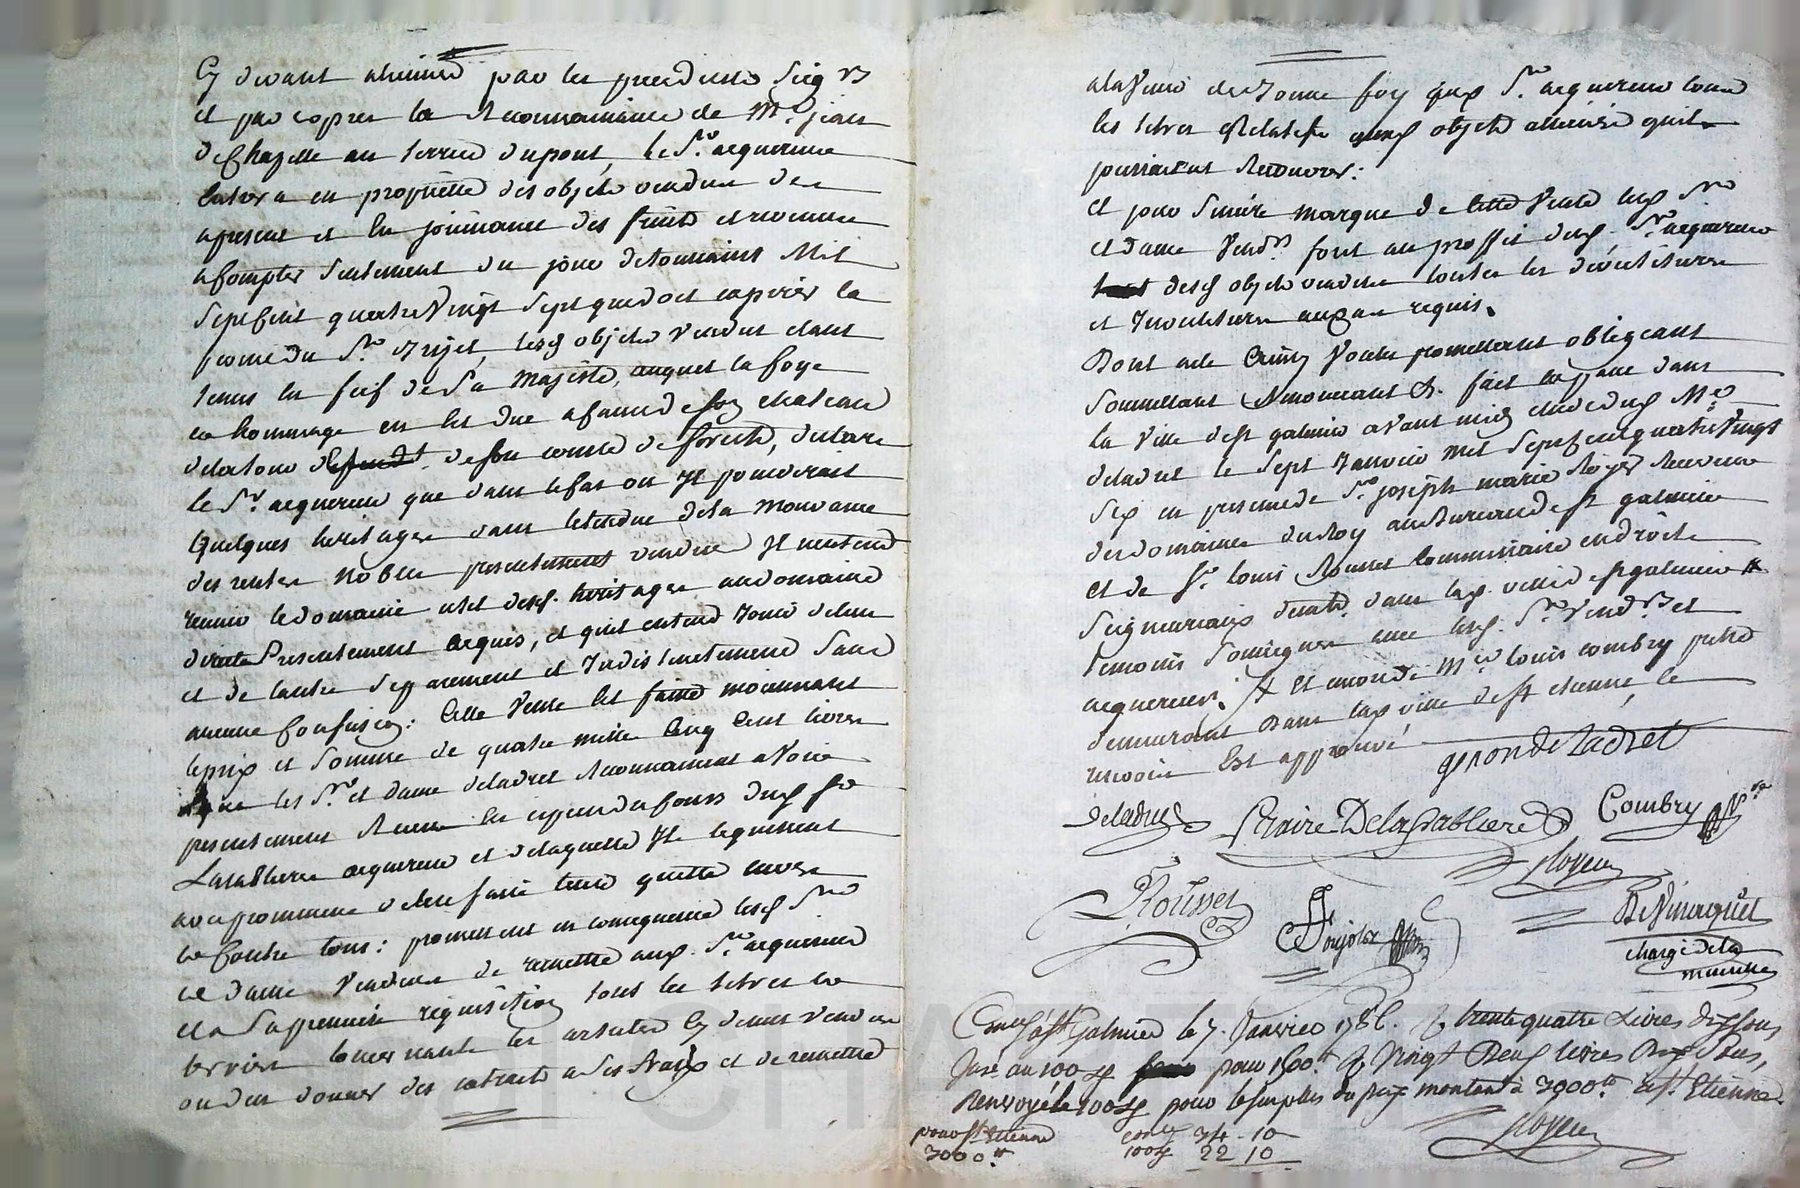 Cy devant par les
et par exprès la Reconnoissance de Mre jean
dechazelle au terrier dupont, le Sr. acquereur
entrera en propriette des objets vendus des
apresent et en jouissance des fruits et revenus
a Compter seulement du jour de toussaint Mil
Sept Cent quatre Vingt Sept que doit expirer la
ferme du Sr. lesd objets vendus etant
tenus en fief de Sa Majesté, auquel la foye
et hommage en est due a Cause de son chateau
de son comté de forest, declare
le Sr. acquereur que dans le Cas ou Il
quelques heritages dans letendue dela mouvance
des rentes Nobles presentement vendues Il nentend
reunir le domaine utile desd. heritages au domaine
directe Presentement acquis, et quil entend Jouir de lun
et de lautre separement et Indistinctement Sans
aucune Confusion: Cette Vente est faitte moiennant
le prix et somme de quatre mille Cinq Cent livres
que les Sr. et dame deladret reconnoissent avoir
presentement Receu en especes du Cours dud Sr
Lasabliere acquereur et delaquelle Il le quittent
avec promesse de len faire tenir quitte envers
et Contre tous: promettent en consequence lesd Srs
et dame Vendeurs de remettre aud. Sr. acquereur
et a Sa premiere requisition tous les titres et
terriers concernant les articles Cy dessus vendus
ou den donner des extraits a Ses fraix et de remettre
de bonne foy aud Sr. acquereur tous
les titres Relatifs auxd objets quils
pourroient Retrouver:
et pour Sincere marque de cette Vente lesd Srs
et dame Vendrs. font au proffit dud. Sr. acquereur
desd objets vendus toutes les devestitures
et Investitures auxd cas requis.
Dont acte Ainsy Voulu promettant obligeant
Soumettant Renonceant &. fait et passé dans
la Ville de St galmier avant midy etude dud Me
deladret le Sept Janvier mil Sept Cent quatre Vingt
Six en presence de Sr. joseph marie Royer Receveur
des domaines du Roy au bureau de St galmier
et de Sr. louis Rousset Commissaire en droits
Seigneuriaux dans lad. ville de St galmier
temoins Soussignes avec lesd. Srs Vendrs et
acquereur. Et encore de Me louis combry
demeurant Dans lad ville de St etienne, le
renvoi Est approuvé
geron de ladret
deladret Claire Delasabliere Combry
Royer
Rousset
chargé dela
minutte
Con. a St Galmier le 7. Janvier 1786. R trente quatre Livres dix Sous,
pour 1500tt R Vingt Deux livres Dix Sous,
Renvoyé le 100e pour le Surplus du prix montant a 3000tt a St. Etienne.
Royer
pour St Etienne
3000tt
con. 34 - 10
100e 22 10